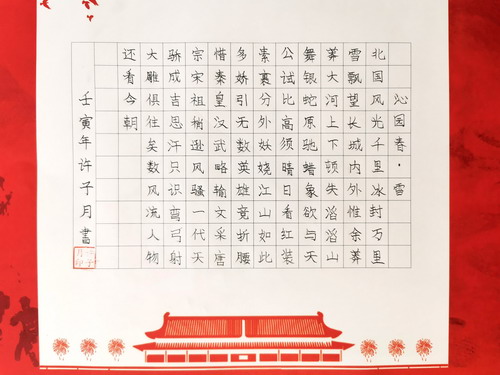 沁园春·雪
北国风光千里冰封万里
雪飘望长城内外惟余莽
莽大河上下顿失滔滔山
舞银蛇原驰蜡象欲与天
公试比高须晴日看红装
素裹分外妖娆江山如此
多娇引无数英雄竞折腰
惜秦皇汉武略输文采唐
宗宋祖稍逊风骚一代天
骄成吉思汗只识弯弓射
大雕俱往矣数风流人物
还看今朝
壬寅年许子月書